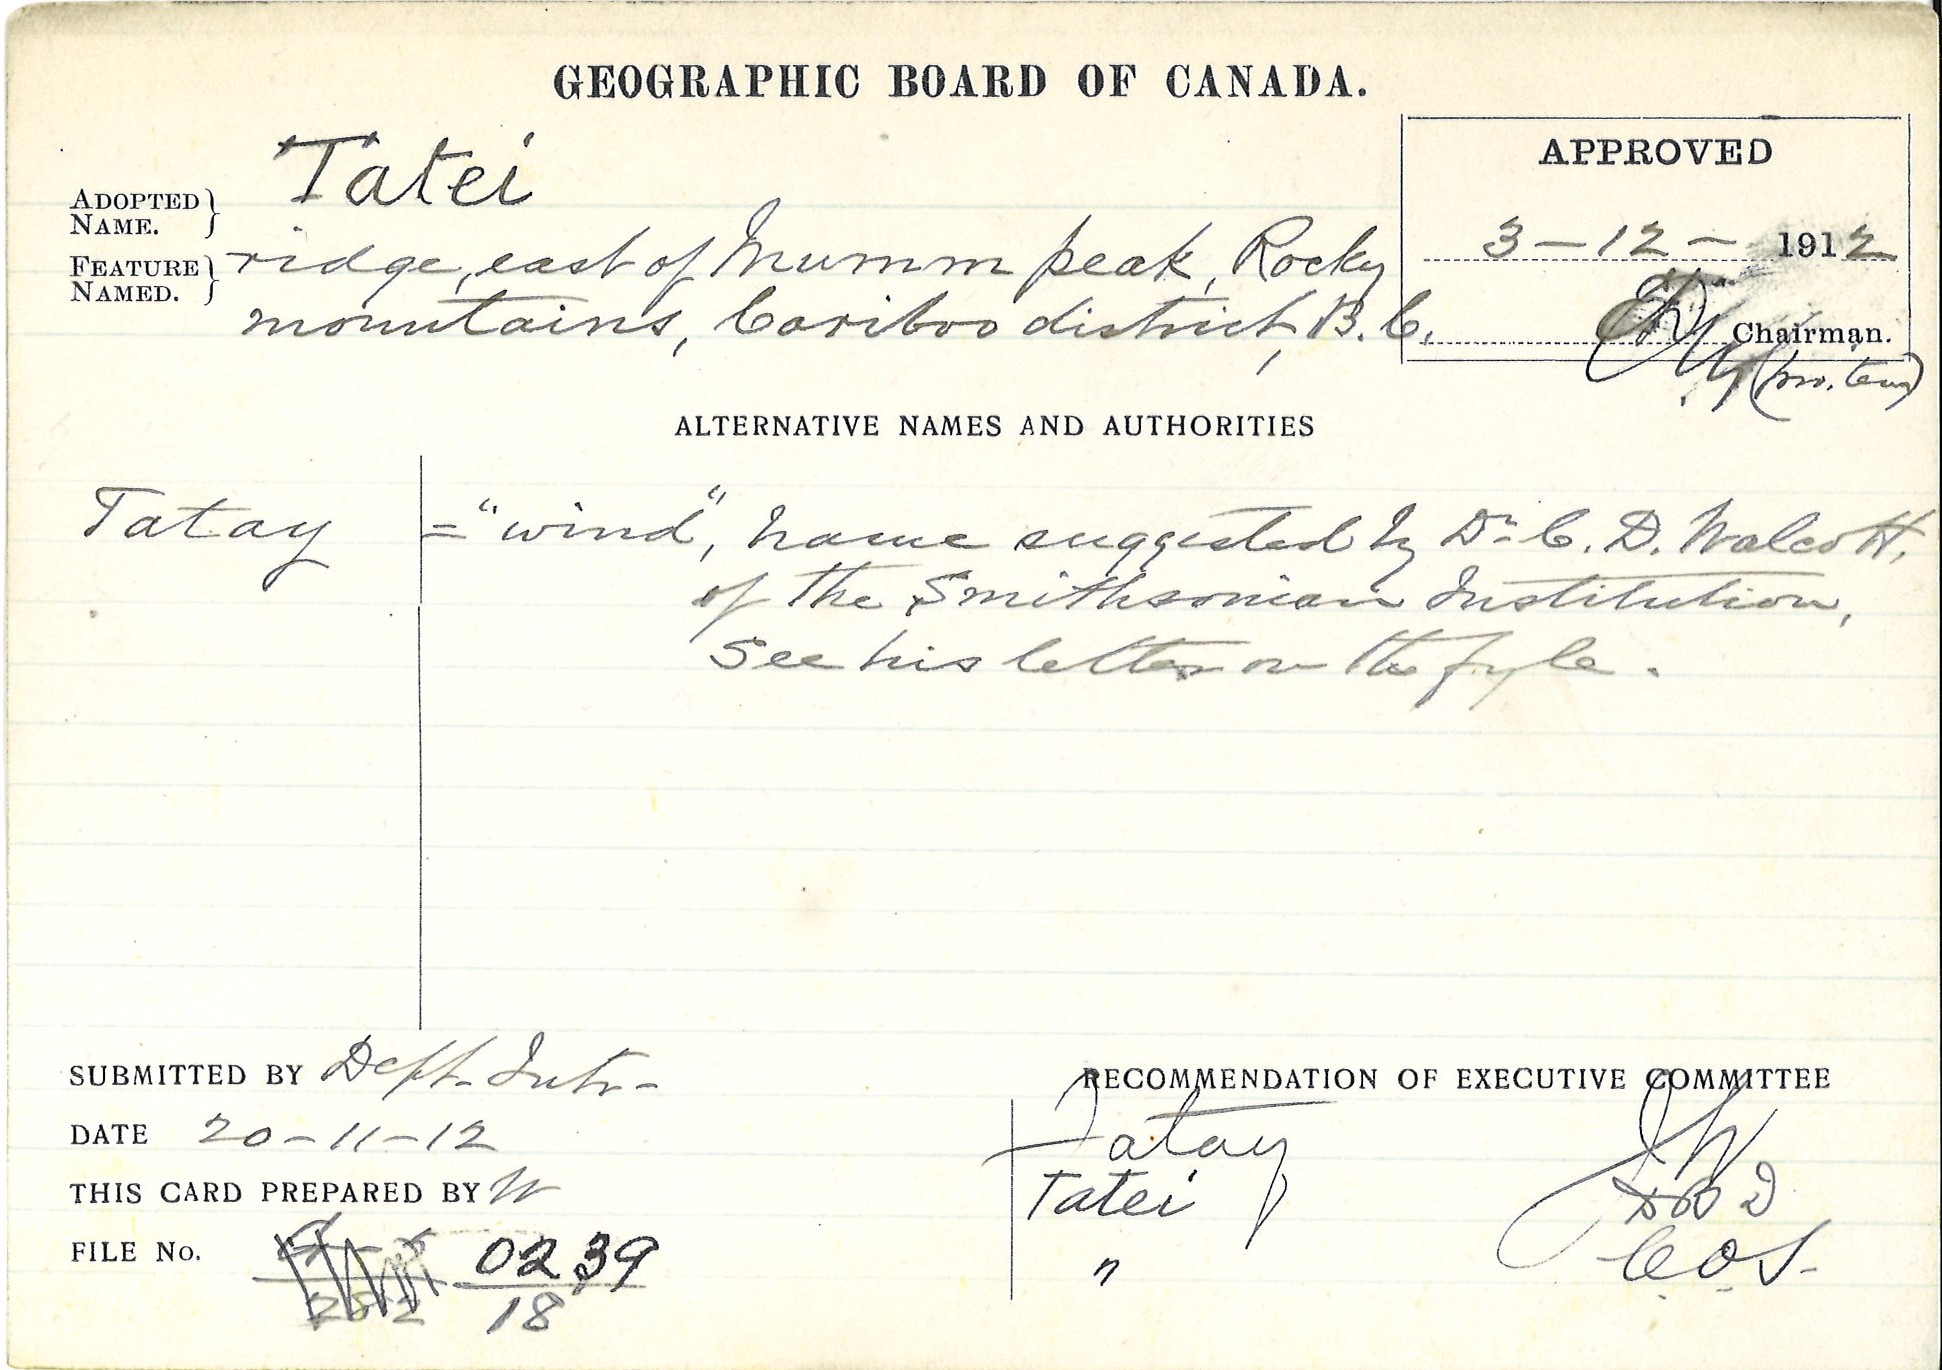 GEOGRAPHIC BOARD OF CANADA.
ADOPTED NAME. } Tatei
FEATURE NAMED. } ridge, east of Mumm peak, Rocky
mountains, Cariboo district, B.C.
APPROVED
3-12- 1912
Chairman.
(pro. tem)
ALTERNATIVE NAMES AND AUTHORITIES
Tatay = "wind", name suggested by Dr. C. D. Walcott,
of the Smithsonian Institution,
See his letter on the fyle.
SUBMITTED BY Dept. Intr-
DATE 20-11-12
THIS CARD PREPARED BY W
FILE No. 0239
18
RECOMMENDATION OF EXECUTIVE COMMITTEE
Tatay
Tatei
"